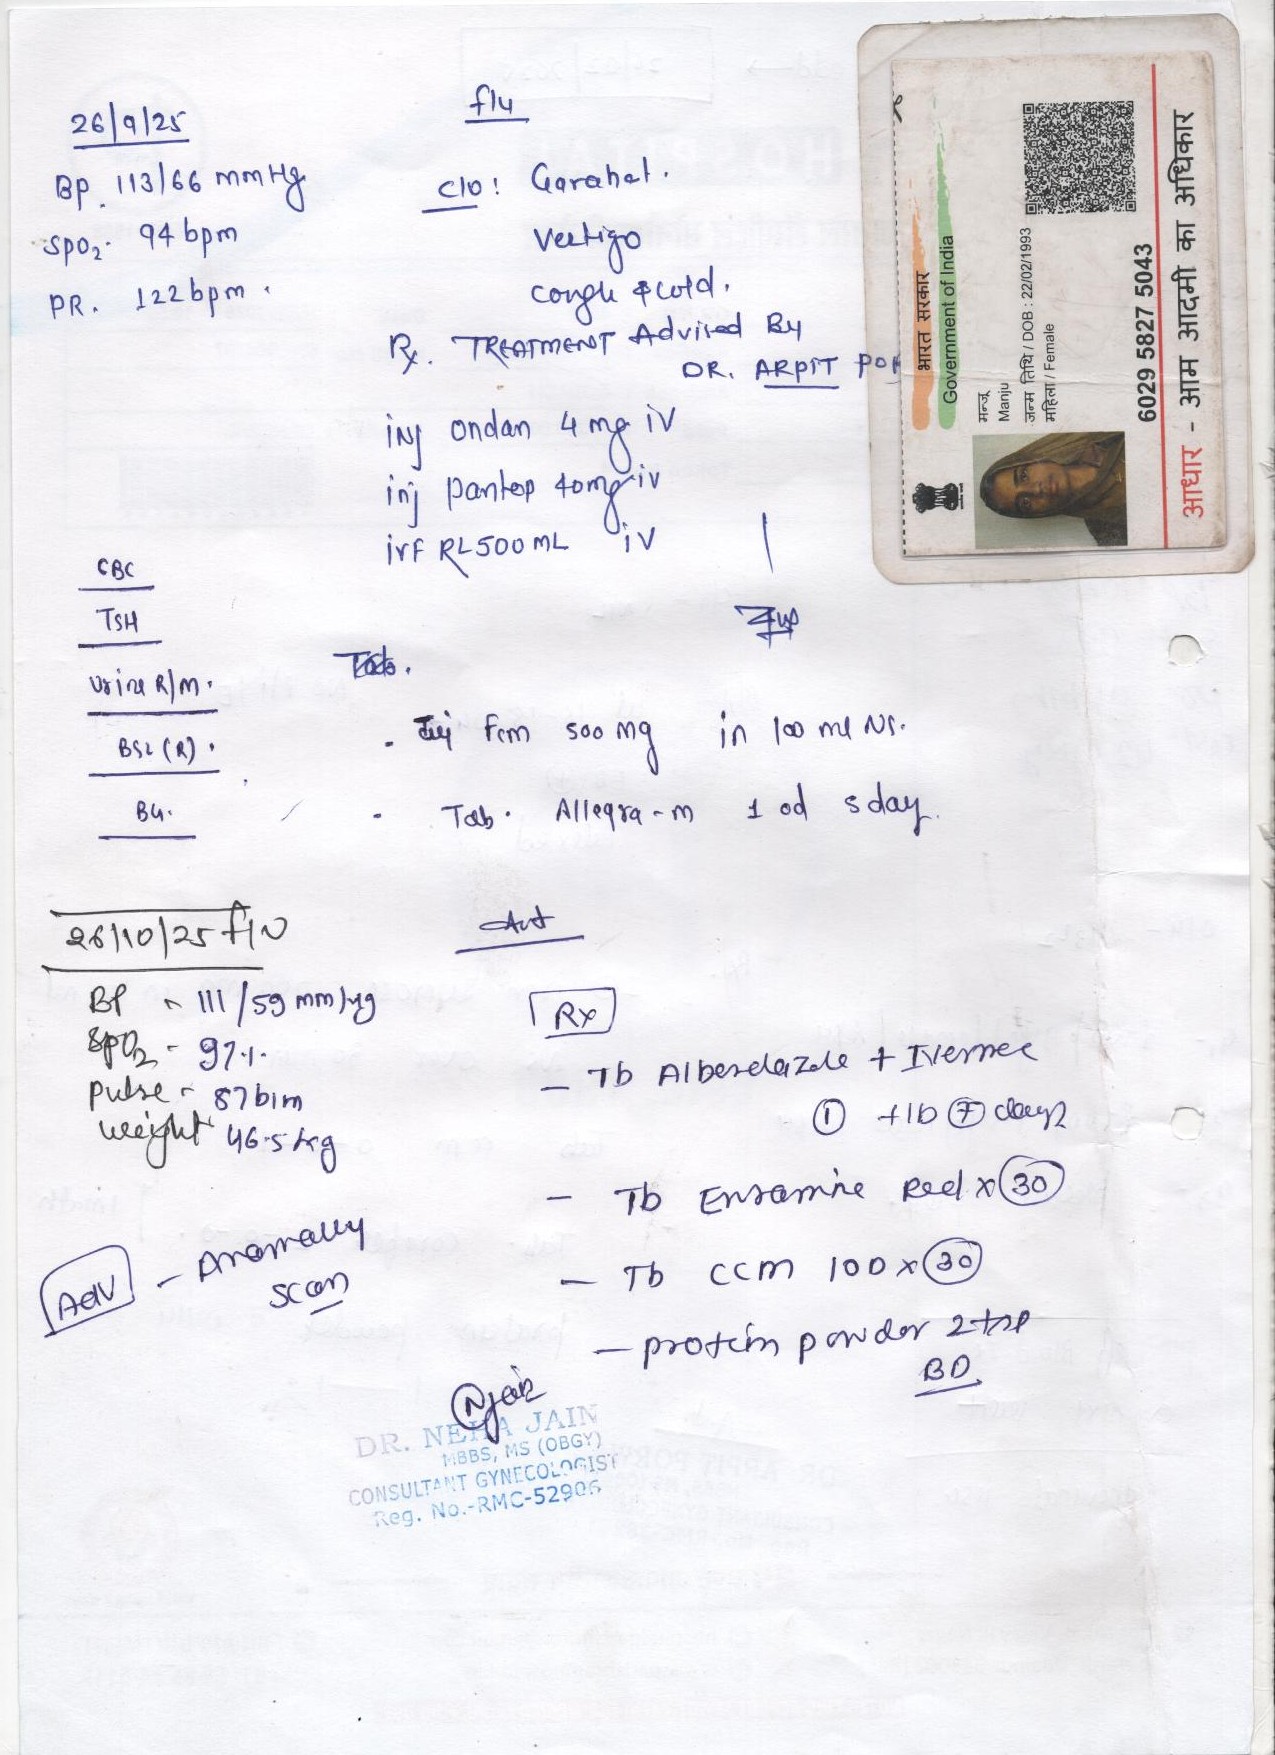 26/9/25
f/u
Bp. 113/66 mmHg
SpO2. 94 bpm
PR. 122 bpm.
c/o: Garahat.
Vertigo
cough & cold.
Rx. TREATMENT Advised By
DR. ARPIT POR
inj ondan 4 mg iv
inj pantop 40mg iv
ivf RL 500 ML iv
CBC
TSH
Urine R/M.
BSL (R).
BG.
Tab.
. inj Fcm 500 mg in 100 ml NS.
. Tab. Allegra-m 1 od 5 day.
26/10/25 f/u
BP - 111/59 mmHg
SpO2 - 97%.
pulse - 87 b/m
weight 46.5 kg
Adv - Anomally
scan
Rx
- Tb Albendazole + Ivermec
① + 1b ⑦ days
- Tb Ensamine Red x 30
- Tb CCM 100 x 30
- protein powder 2 tsp
BD
Njain
DR. NEHA JAIN
MBBS, MS (OBGY)
CONSULTANT GYNECOLOGIST
Reg. No.-RMC-52906
भारत सरकार
Government of India
मन्जू
Manju
जन्म तिथि / DOB : 22/02/1993
महिला / Female
6029 5827 5043
आधार - आम आदमी का अधिकार